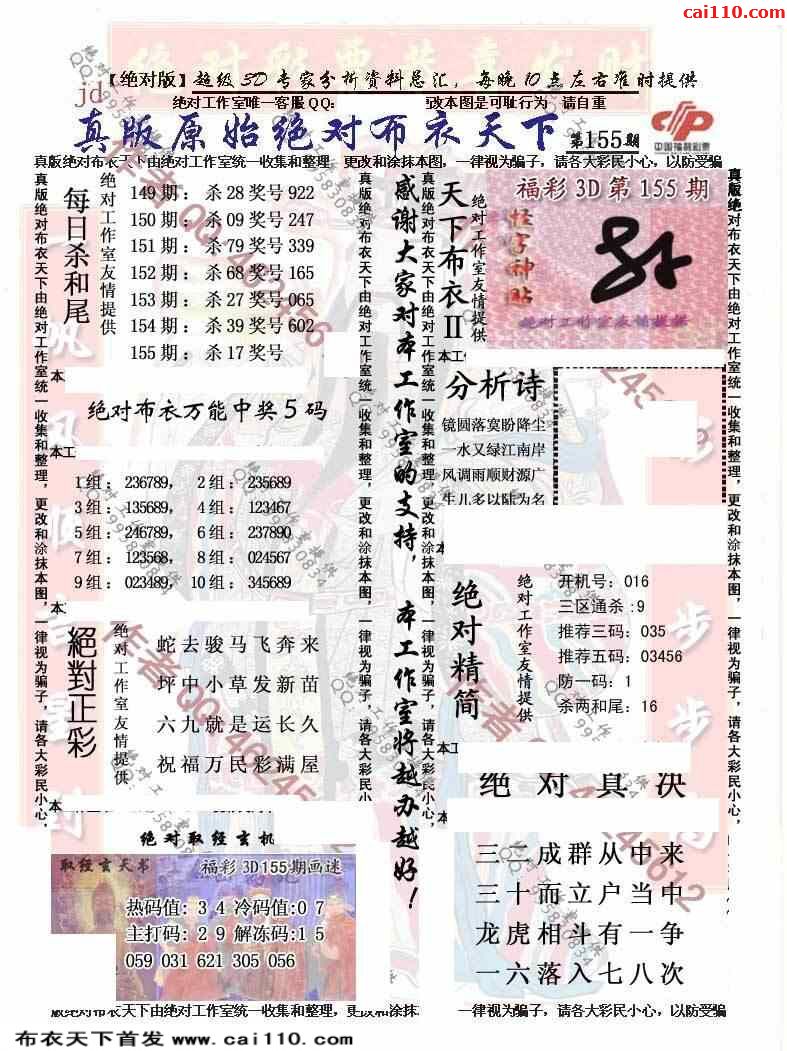 cai110.com
【绝对版】超级3D专家分析资料总汇，每晚10点左右准时提供
jd
绝对工作室唯一客服QQ:
改本图是可耻行为 请自重
真版原始绝对布衣天下
第155期
中国福利彩票
真版绝对布衣天下由绝对工作室统一收集和整理，更改和涂抹本图，一律视为骗子，请各大彩民小心，以防受骗
每日杀和尾
绝对工作室友情提供
149期：杀28奖号922
150期：杀09奖号247
151期：杀79奖号339
152期：杀68奖号165
153期：杀27奖号065
154期：杀39奖号602
155期：杀17奖号
绝对布衣万能中奖5码
1组：236789， 2组：235689
3组：135689， 4组：123467
5组：246789， 6组：237890
7组：123568， 8组：024567
9组：023489， 10组：345689
絕對正彩
绝对工作室友情提供
蛇去骏马飞奔来
坪中小草发新苗
六九就是运长久
祝福万民彩满屋
绝对取经玄机
取经玄天书
福彩3D155期画迷
热码值: 3 4 冷码值:0 7
主打码: 2 9 解冻码:1 5
059 031 621 305 056
真版绝对布衣天下由绝对工作室统一收集和整理，更改和涂抹本图，一律视为骗子，请各大彩民小心，
感谢大家对本工作室的支持，本工作室将越办越好！
天下布衣II
绝对工作室友情提供
福彩3D第155期
怪字神贴
绝对工作室友情提供
分析诗
镜圆落寞盼降尘
一水又绿江南岸
风调雨顺财源广
生儿多以陆为名
绝对精简
绝对工作室友情提供
开机号：016
三区通杀:9
推荐三码：035
推荐五码：03456
防一码：1
杀两和尾：16
绝对真决
三二成群从中来
三十而立户当中
龙虎相斗有一争
一六落入七八次
版绝对布衣天下由绝对工作室统一收集和整理，更改和涂抹
一律视为骗子，请各大彩民小心，以防受骗
布衣天下首发 www.cai110.com